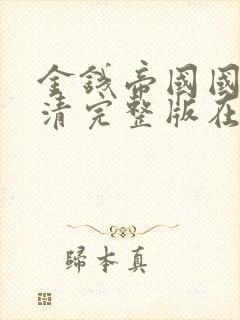 金錢帝國國
清完整版在
歸本真